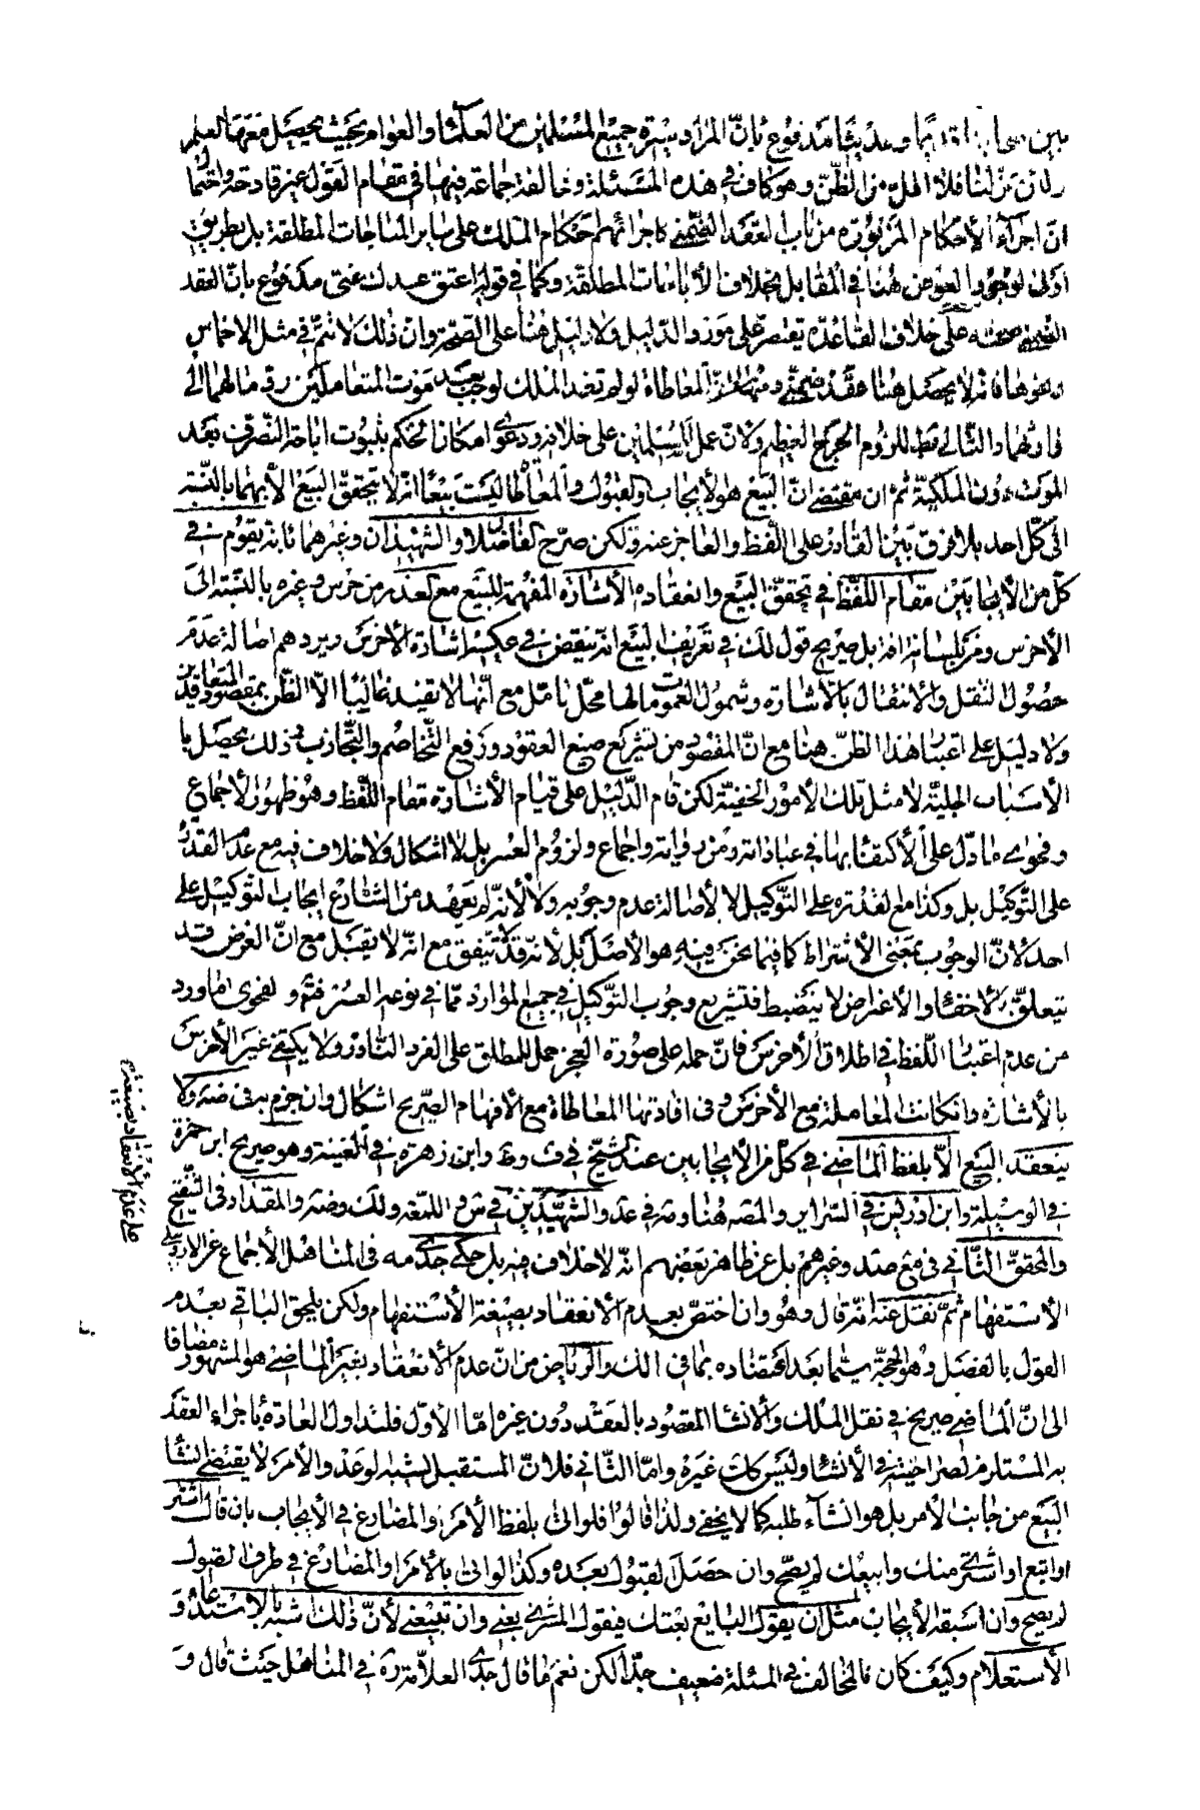 بين قديما وحديثا مدفوع بان المراد سيرة جميع المسلمين من العلماء والعوام بحيث يحصل معها العلم
نزلنا فلا اقل من الظن وهو كاف في هذه المسئلة ومخالفة جماعة فيها في مقام القول غير قادحة واحتمال
ان اجراء الأحكام المزبورة من باب العقد الضمني كاجرائهم احكام الملك على ساير المباحات المطلقة بل بطريق
اولى لوجود العوض هنا في المقابل بخلاف الأباحات المطلقة وكما في قوله اعتق عبدك عني مدفوع بان العقد
الضمني صحته على خلاف القاعدة يقتصر على مورد الدليل ولا دليل هنا على الصحة وان ذلك لا يتم في مثل الاخماس
ونحوها فانه لا يحصل هنا عقد ضمني ومنها ان المعاطاة لو لم تفد الملك لوجب بعد موت المتعاملين رد مالهما الى
وارثهما والتالي بط للزوم الحرج العظيم ولان عمل المسلمين على خلافه ودعوى امكان الحكم بثبوت اباحة التصرف بعد
الموت دون الملكية ثم ان مقتضى ان البيع هو الأيجاب والقبول والمعاطا ليست بيعا انه لا يتحقق البيع الأ بهما بالنسبة
الى كل احد بلا فرق بين القادر على اللفظ والعاجز عنه ولكن صرح الفاضلا والشهيدان وغيرهما بانه يقوم في
كل من الأيجابين مقام اللفظ في تحقق البيع وانعقاده الأشارة المفهمة للبيع مع العذر من خرس وغيره بالنسبة الى
الأخرس ومن بلسانه افة بل صريح قول لك في تعريف البيع انه ينقض في عكسه اشارة الأخرس ويردهم اصالة عدم
حصول النقل والأنتقال بالأشارة وشمول العمومات لها محل تامل مع انها لا تفيد غالبا الا الظن بمقصود المتعاقدين
ولا دليل على اعتبار هذا الظن هنا مع ان المقصود من تشريع صيغ العقود ورفع التخاصم والتجاذب وذلك يحصل با
الأسباب الجلية لا مثل تلك الأمور الخفية لكن قام الدليل على قيام الأشارة مقام اللفظ وهو ظهور الأجماع
وفحوى ما دل على الأكتفاء بها في عباداته ومن رواية واجماع ولزوم العسر بل لا اشكال ولا خلاف فيه مع عدم القدرة
على التوكيل بل وكذا مع القدرة على التوكيل لا لأصالة عدم وجوبه ولا لأنه لم يعهد من الشارع ايجاب التوكيل على
احد لان الوجوب بمعنى الأشتراط كما فيما نحن فيه هو الأصل بل لأنه قد يتفق مع انه لا يقبل مع ان الغرض قد
يتعلق بالأخفاء والأغراض لا ينضبط فتشريع وجوب التوكيل في جميع الموارد مما في نوعه العسر فتم ولفحوى ما ورد
من عدم اعتبار اللفظ في اطلاق الأخرس فان حمله على صورة العجز حمل للمطلق على الفرد النادر ولا يكتفى غير الأخرس
بالأشارة وان كانت المعاملة مع الأخرس وفى افادتها المعاطاة مع الافهام الصريح اشكال وان جزم به في ضه ولا
ينعقد البيع الا بلفظ الماضي في كل من الأيجابين عند الشيخ في ف وط وابن زهرة في الغنية وهو صريح ابن حمزة
في الوسيلة وابن ادريس في السراير والمصه هنا وفى عد والشهيدين في س واللمعة ولك وضه والمقداد فى التنقيح
والمحقق الثاني في مع صد وغيرهم بل عن ظاهر بعضهم انه لا خلاف فيه بل حكى جدى مه فى المناهل الأجماع عن الاردبيلى على عدم الأنعقاد بصيغة
الأستفهام ثم نقل عنه انه قال وهو وان اختص بعدم الأنعقاد بصيغة الأستفهام ولكن يلحق الباقي بعدم
القول بالفصل وهو الحجة سيما بعد اعتضاده بما في لك والرياض من ان عدم الأنعقاد بغير الماضي هو المشهور مضافا
الى ان الماضي صريح في نقل الملك والأنشاء المقصود بالعقد دون غيره اما الأول فلتداول العادة باجراء العقد
به المستلزم لصراحيته في الأنشاء وليس كك غيره واما الثاني فلان المستقبل اشبه لوعد والأمر لا يقتضي انشاء
البيع من جانب الأمر بل هو انشاء طلبه كما لا يخفى ولذا قالوا فلو اتى بلفظ الأمر والمضارع في الأيجاب بان قال اشتر
او ابتع او اشترى منك وابيعك لم يصح وان حصل القبول بعده وكذا لو اتى بالأمر او المضارع في طرف القبول
لم يصح وان اسبقه الأيجاب مثل ان يقول البايع بعتك فيقول المشترى بعني وان تبيعني لأن ذلك اشبه بالأستدعاء و
الأستعلام وكيف كان فالمخالف في المسئلة ضعيف جدا لكن نعم ما قال جدى العلامة ره في المناهل حيث قال و